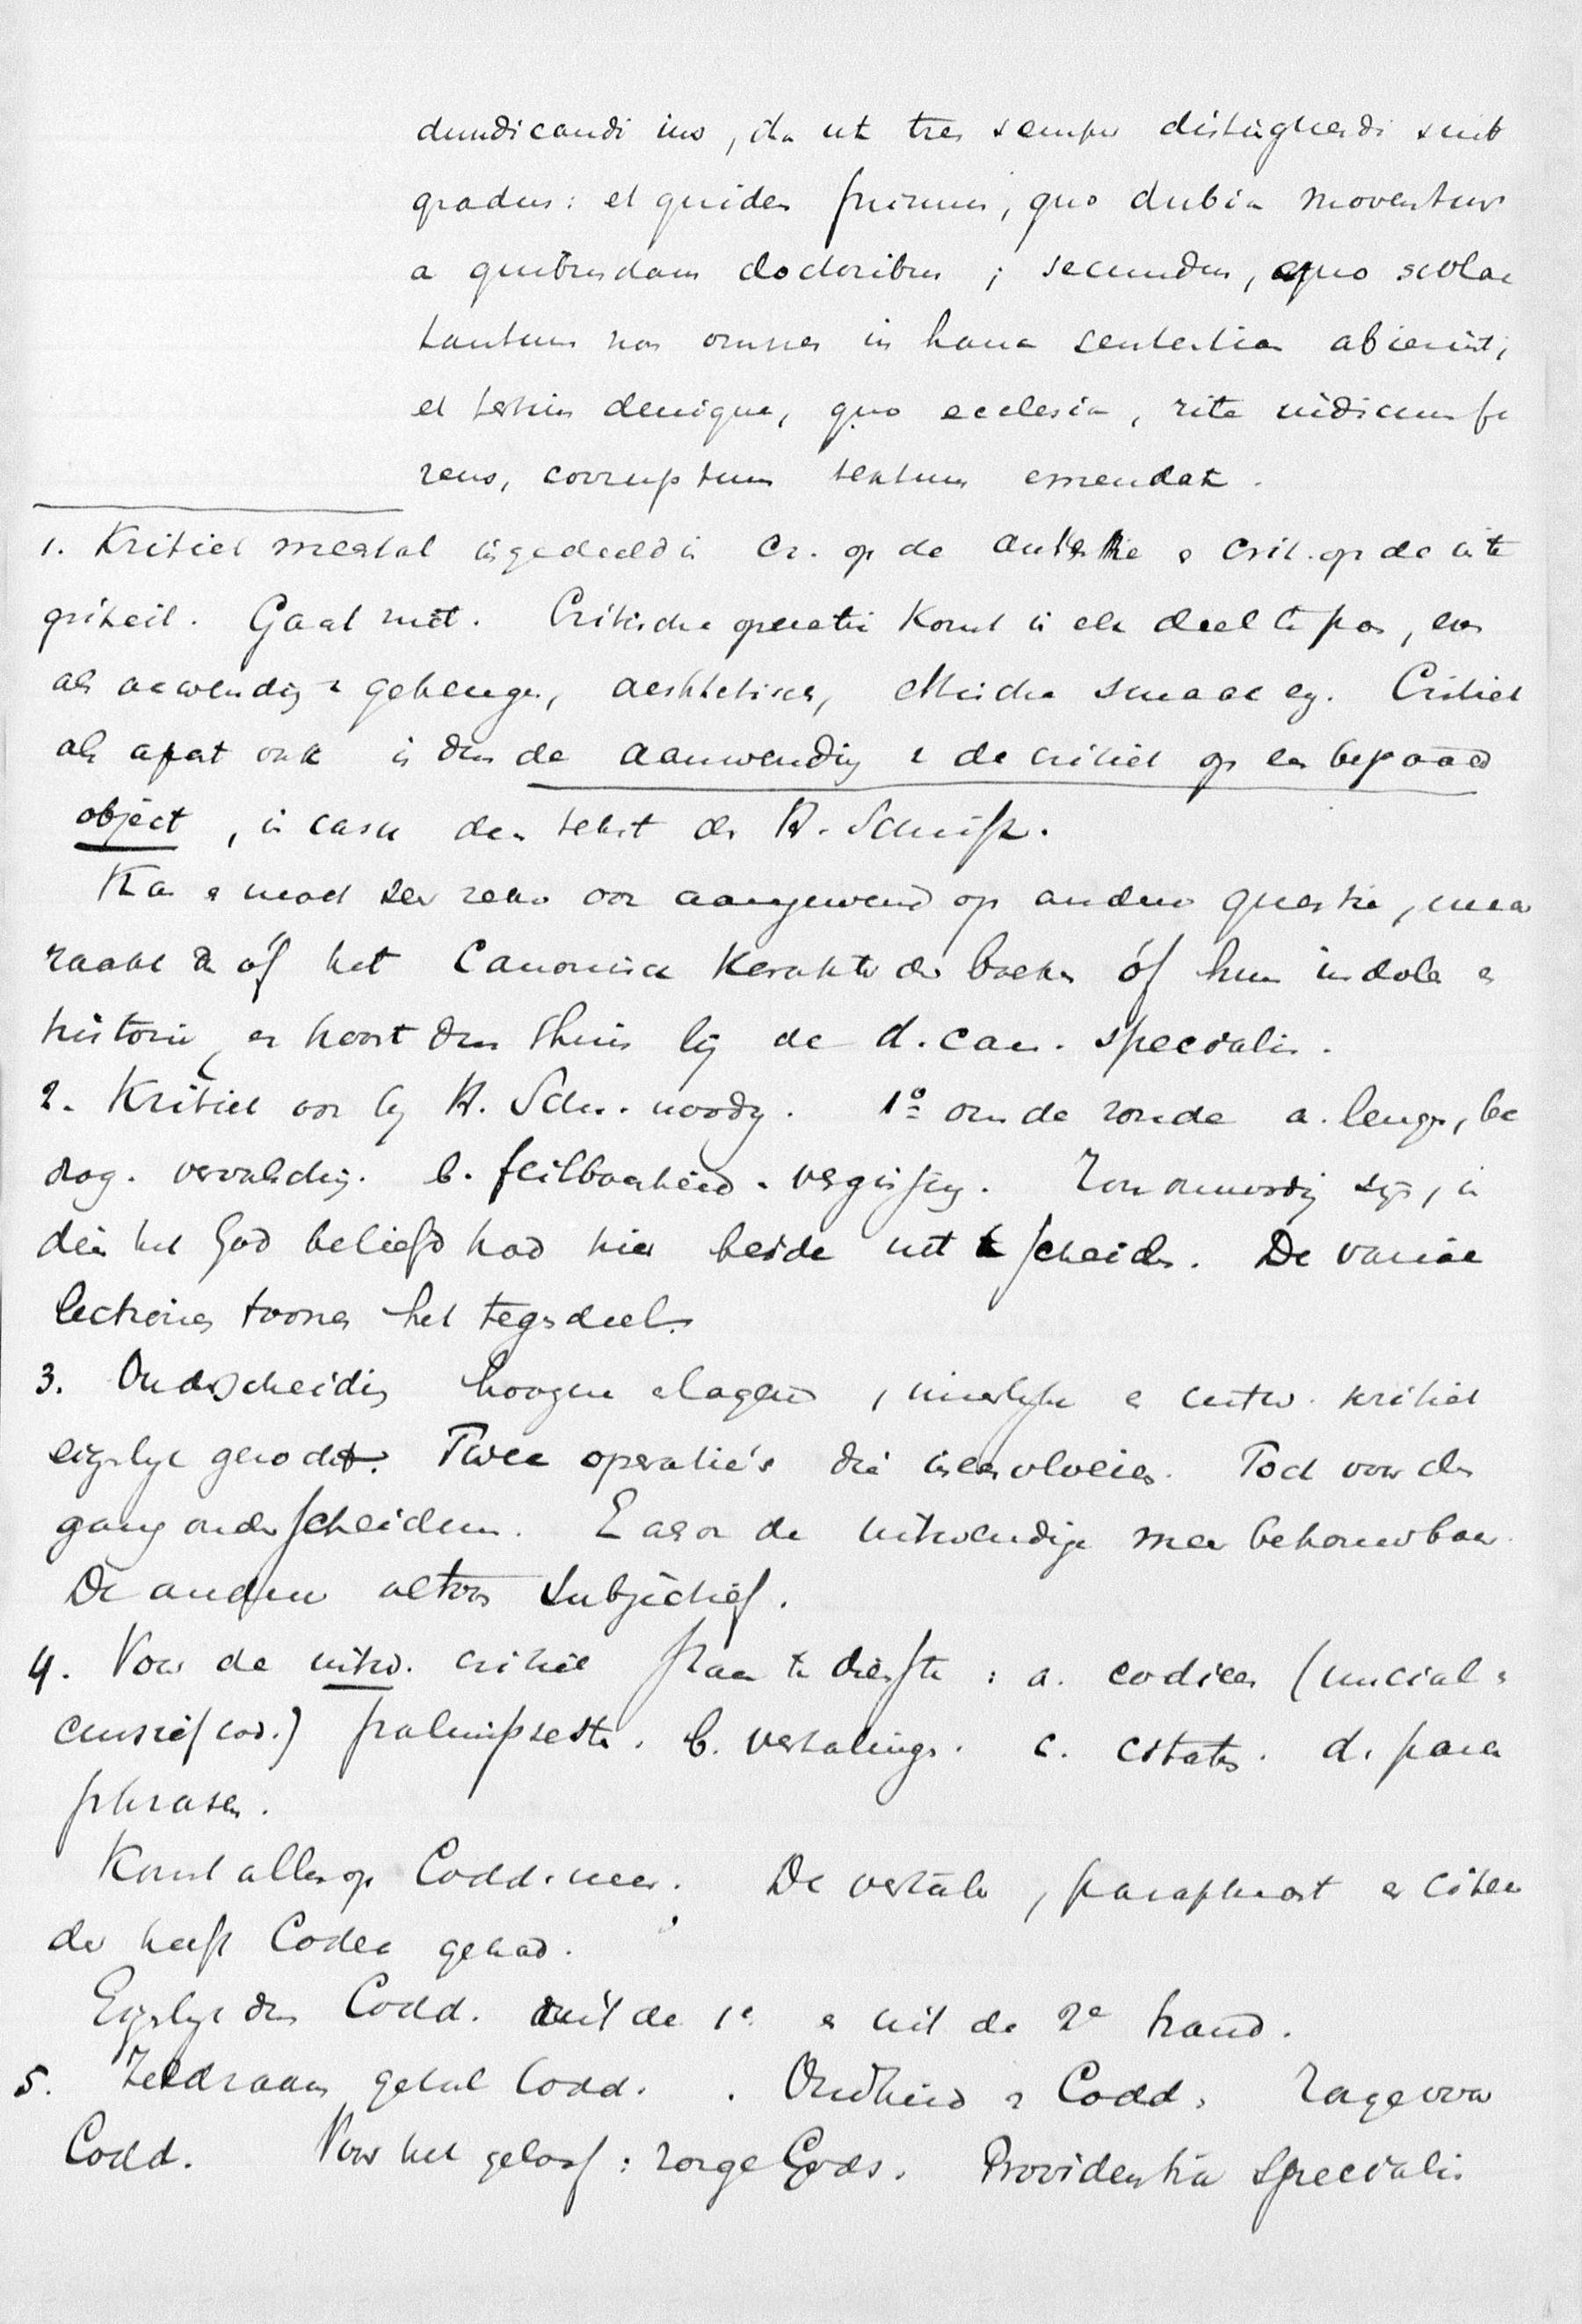 diiudicandi ius, ita ut tres semper distinguendi sint
gradus: et quidem primus, quo dubia moventur
a quibusdam doctoribus; secundus, quo scolae
tantum non omnes in hanc sententiam abierint;
et tertius denique, quo ecclesia, rite iudicium fe
rens, corruptum textum emendat.
1. Kritiek meestal ingedeeld in Cr. op de autentie e crit. op de inte
griteit. Gaat niet. Critische operatie komt in elk deel te pas, even
als aanwending v geheugen, aesthetische, ethische smaak enz. Critiek
als apart vak is dus de aanwending v de critiek op een bepaald
object, in casu den tekst der H. Schrift.
Kan e moet zeer zeker ook aangewend op andere questie, maar
raakt dan óf het Canonieke karakter der boeken óf hun indole e
historie, en hoort dus thuis bij de d. can. specialis.
2. Kritiek ook bij H. Schr. noodig. 1º om de zonde a. leugen, be
drog. vervalsching. b. feilbaarheid. vergissing. Zou onnoodig zijn, in
dien het God beliefd had hier beide uit te scheiden. De variae
lectiones toonen het tegendeel.
3. Onderscheiding hoogere e lagere, innerlijke e uitw. kritiek
eigenlijk geoordeeld. Twee operatie's die ineenvloeien. Toch voor den
gang onderscheiden. E de uitwendige meer betrouwbaar.
De andere altoos subjectief.
4. Voor de uitw. critiek staan te dienste: a. codices (unciaal e
cursief cod.) palimpseste. b. vertalingen. c. citaten. d. para
phrasen.
Komt alles op Codd. neer. De vertaler, paraphrast e citeer
der heeft Codex gehad.
Eigenlijk dus Codd. uit de 1e e uit de 2e hand.
5. Zeldzaam getal Codd. Oudheid v Codd. Zorge voor
Codd. Voor het geloof: zorge Gods. Providentia specialis